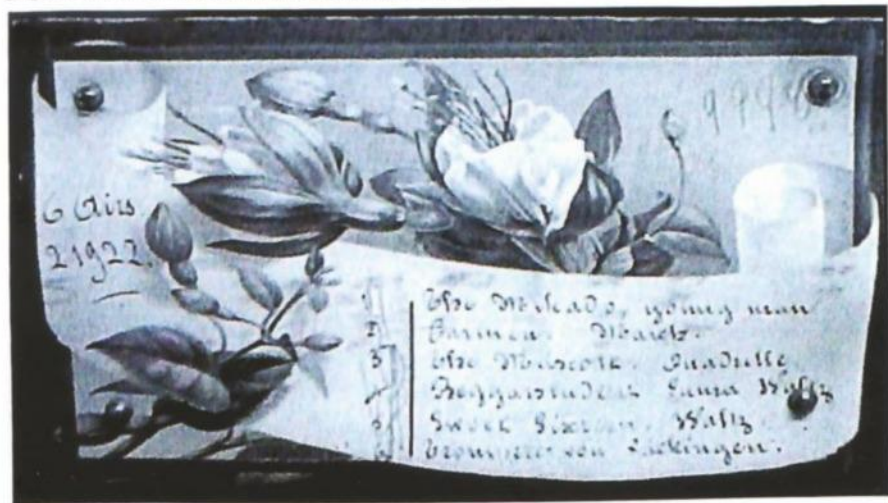 6 Airs.
21922.
1 The Mikado, young man
2 Carmen. March.
3 The Mascotte. Quadrille
4 Beggarstudent Laura Waltz
5 Sweet Sixteen. Waltz
6 Trompeter von Säckingen.